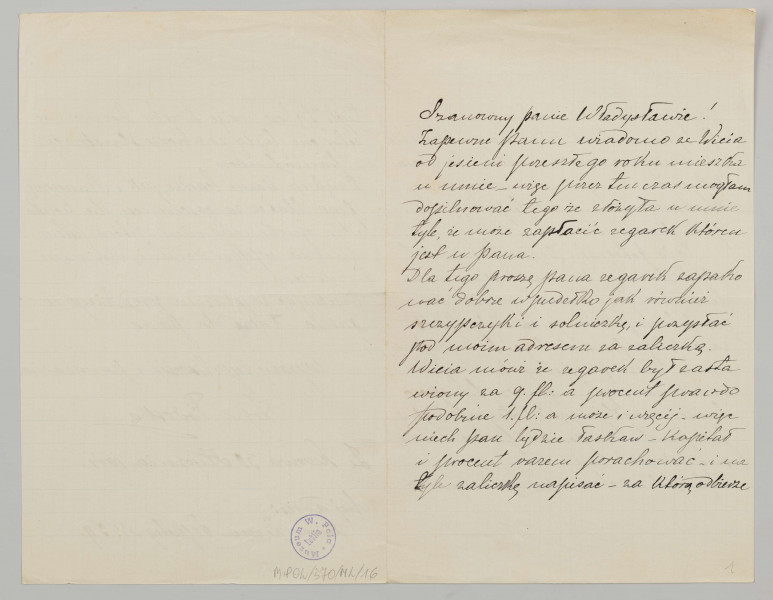 Szanowny panie Władysławie!
Zapewne Panu wiadomo że Wicia
od jesieni przeszłego roku mieszka
u mnie – więc przez ten czas mogłam
dopilnować tego że złożyła u mnie
tyle, że może zapłacić zegarek któren
jest u Pana.
Dla tego proszę Pana zegarek zapako
wać dobrze w pudełko jak również
szczypczyki i solniczkę, i przysłać
pod moim adresem za zaliczką.
Wicia mówi że zegarek był zasta
wiony za 9. fl: a procent prawdo
podobnie 1. fl: a może i więcej – więc
niech Pan będzie łaskaw – Kapitał
i procent razem porachować – i na
tyle zaliczkę napisać – za którą odbierze
Muzeum W. Pola
Lublin
M-POL/370/ML/16
1